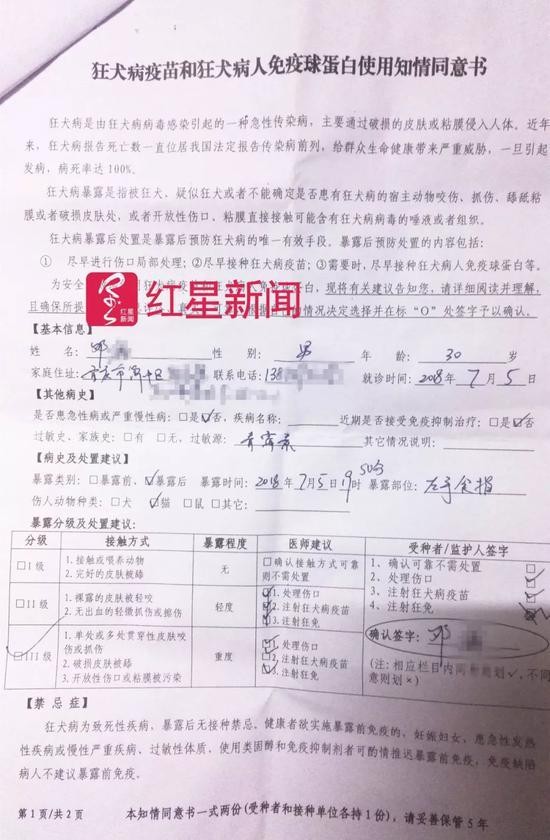 狂犬病疫苗和狂犬病人免疫球蛋白使用知情同意书
狂犬病是由狂犬病病毒感染引起的一种急性传染病，主要通过破损的皮肤或粘膜侵入人体。近年
来，狂犬病报告死亡数一直位居我国法定报告传染病前列，给群众生命健康带来严重威胁，一旦引起
发病，病死率达100%。
狂犬病暴露是指被狂犬、疑似狂犬或者不能确定是否患有狂犬病的宿主动物咬伤、抓伤、舔舐粘
膜或者破损皮肤处，或者开放性伤口、粘膜直接接触可能含有狂犬病病毒的唾液或者组织。
狂犬病暴露后处置是暴露后预防狂犬病的唯一有效手段。暴露后预防处置的内容包括：
① 尽早进行伤口局部处理；②尽早接种狂犬病疫苗；③需要时，尽早接种狂犬病人免疫球蛋白等。
为安全 疫球蛋白，现将有关建议告知您，请详细阅读并理解，
且确保所提 情况决定选择并在标“O”处签字予以确认。
红星新闻
红星新闻
【基本信息】
姓 名：邓 性 别：男 年 龄：30 岁
家庭住址： 市 区 联系电话：138 就诊时间：2018年7月5日
【其他病史】
是否患急性病或严重慢性病：□是☑否，疾病名称： 近期是否接受免疫抑制治疗：□是☑否
过敏史、家族史：□有 □无，过敏源：青霉素 其它情况说明：
【病史及处置建议】
暴露类别：□暴露前、☑暴露后 暴露时间：2018年7月5日19时50分 暴露部位：左手食指
伤人动物种类：□犬 ☑猫 □鼠 □其它：
暴露分级及处置建议：
分级 接触方式 暴露程度 医师建议 受种者/监护人签字
□I级 1.接触或喂养动物 无 □确认接触方式可靠 1、确认可靠不需处置 □
2.完好的皮肤被舔 则不需处置 2、处理伤口 ☑
□II级 1.裸露的皮肤被轻咬 轻度 ☑1.处理伤口 3、注射狂犬病疫苗 ☑
2.无出血的轻微抓伤或擦伤 ☑2.注射狂犬病疫苗 4、注射狂免 ☑
☑3.注射狂免
□III级 1.单处或多处贯穿性皮肤咬 重度 ☑1.处理伤口 确认签字：邓
伤或抓伤 ☑2.注射狂犬病疫苗 (注：相应栏目内同意划√，不同
2.破损皮肤被舔 ☑3.注射狂免 意则划×)
3.开放性伤口或粘膜被污染
【禁忌症】
狂犬病为致死性疾病，暴露后无接种禁忌。健康者欲实施暴露前免疫的，妊娠妇女、患急性发热
性疾病或慢性严重疾病、过敏性体质、使用类固醇和免疫抑制剂者可酌情推迟暴露前免疫，免疫缺陷
病人不建议暴露前免疫。
第1页/共2页 本知情同意书一式两份(受种者和接种单位各持1份)，请妥善保管5年